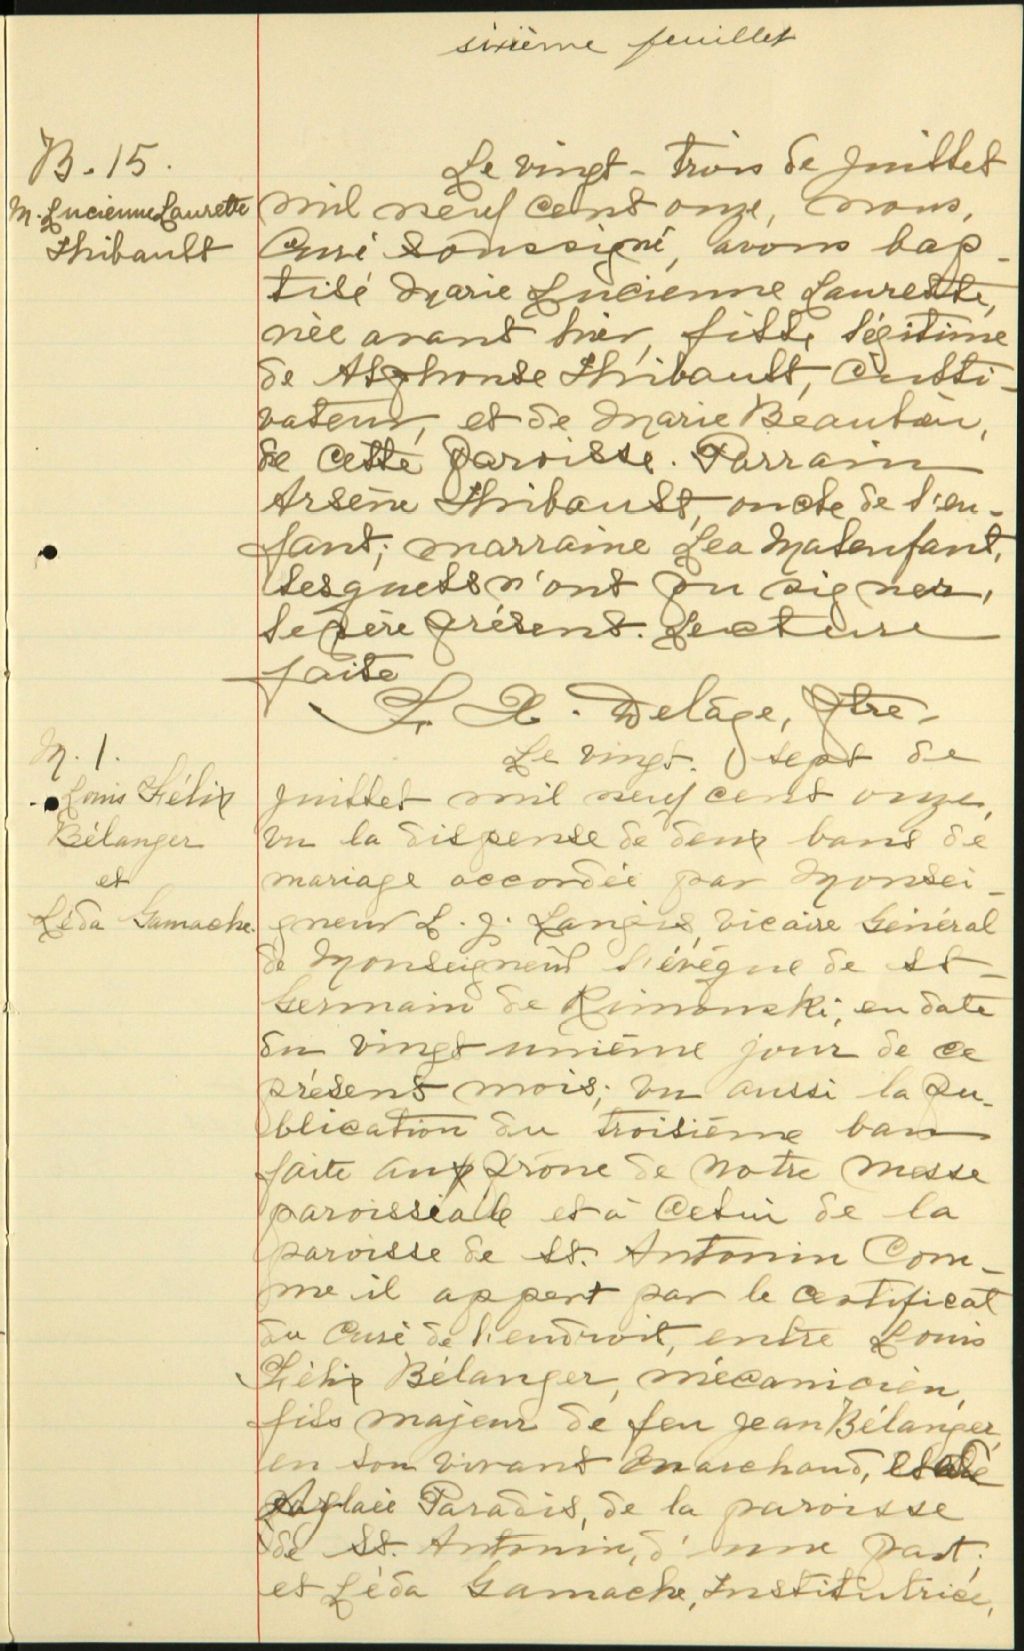 sixième feuillet
B. 15.
M. Lucienne Laurette
Thibault
Le vingt-trois de juillet
mil neuf cent onze, nous,
Curé soussigné, avons bap-
tisé Marie Lucienne Laurette,
née avant hier, fille légitime
de Alphonse Thibault, Culti-
vateur, et de Marie Beaulieu,
de cette paroisse. Parrain
Arsène Thibault, oncle de l'en-
fant; marraine Lea Malenfant,
lesquels n'ont pu signer,
le père présent. Lecture
faite
Delâge, Ptre.
M. 1.
Louis Félix
Bélanger
et
Léda Gamache.
Le vingt-sept de
juillet mil neuf cent onze,
vu la dispense de deux bans de
mariage accordée par Monsei-
gneur L. J. Langis, Vicaire Général
de Monseigneur l'évêque de St-
Germain de Rimouski, en date
du vingt unième jour de ce
présent mois; vu aussi la pu-
blication du troisième ban
faite aux prône de notre messe
paroissiale et à celui de la
paroisse de St. Antonin Com-
me il appert par le certificat
du Curé de l'endroit, entre Louis
Félix Bélanger, mécanicien,
fils majeur de feu Jean Bélanger,
en son vivant Marchand, et de
Aglaée Paradis, de la paroisse
de St. Antonin, d'une part;
et Léda Gamache, Institutrice,